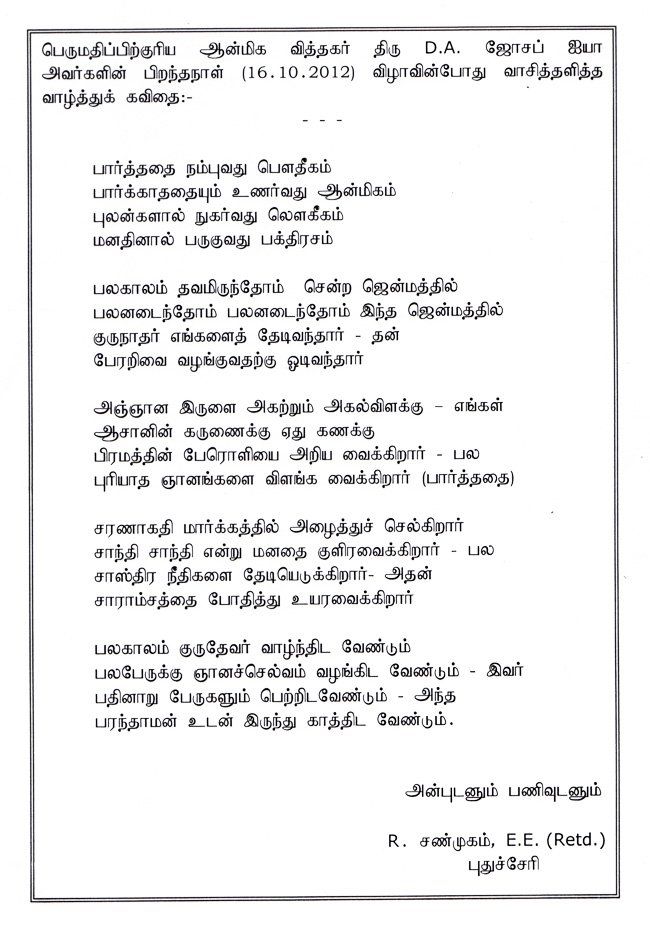 பெருமதிப்பிற்குரிய ஆன்மிக வித்தகர் திரு D.A. ஜோசப் ஐயா
அவர்களின் பிறந்தநாள் (16.10.2012) விழாவின்போது வாசித்தளித்த
வாழ்த்துக் கவிதை:-
- - -
பார்த்ததை நம்புவது பௌதீகம்
பார்க்காததையும் உணர்வது ஆன்மிகம்
புலன்களால் நுகர்வது லௌகீகம்
மனதினால் பருகுவது பக்திரசம்
பலகாலம் தவமிருந்தோம் சென்ற ஜென்மத்தில்
பலனடைந்தோம் பலனடைந்தோம் இந்த ஜென்மத்தில்
குருநாதர் எங்களைத் தேடிவந்தார் - தன்
பேரறிவை வழங்குவதற்கு ஓடிவந்தார்
அஞ்ஞான இருளை அகற்றும் அகல்விளக்கு – எங்கள்
ஆசானின் கருணைக்கு ஏது கணக்கு
பிரமத்தின் பேரொளியை அறிய வைக்கிறார் - பல
புரியாத ஞானங்களை விளங்க வைக்கிறார் (பார்த்ததை)
சரணாகதி மார்க்கத்தில் அழைத்துச் செல்கிறார்
சாந்தி சாந்தி என்று மனதை குளிரவைக்கிறார் - பல
சாஸ்திர நீதிகளை தேடியெடுக்கிறார்- அதன்
சாராம்சத்தை போதித்து உயரவைக்கிறார்
பலகாலம் குருதேவர் வாழ்ந்திட வேண்டும்
பலபேருக்கு ஞானச்செல்வம் வழங்கிட வேண்டும் - இவர்
பதினாறு பேருகளும் பெற்றிடவேண்டும் - அந்த
பரந்தாமன் உடன் இருந்து காத்திட வேண்டும்.
அன்புடனும் பணிவுடனும்
R. சண்முகம், E.E. (Retd.)
புதுச்சேரி